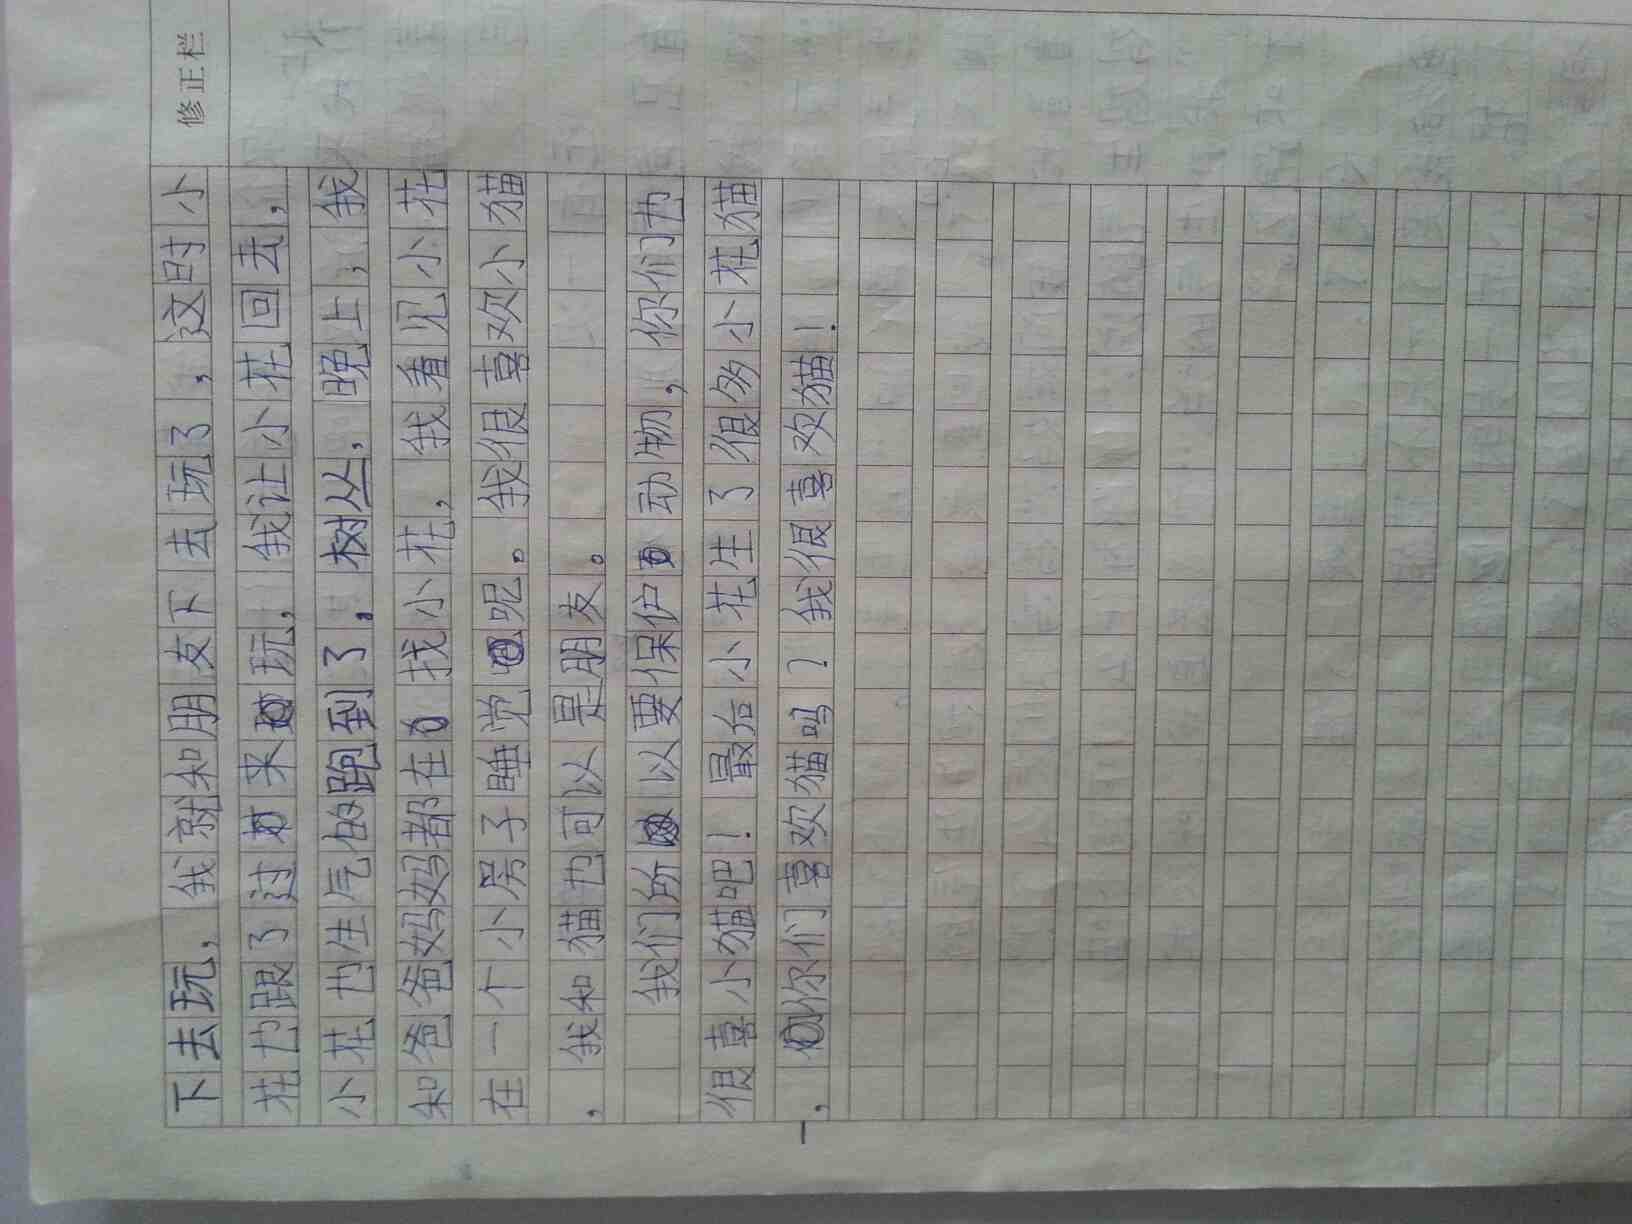 修正栏
下去玩，我就和朋友下去玩了，这时小
花也跟了过来玩，我让小花回去，
小花也生气的跑到了，树丛，晚上，我
和爸爸妈妈都在找小花，我看见小花
在一个小房子睡觉呢。我很喜欢小猫
，我和猫也可以是朋友。
我们所以要保护动物，你们也
很喜小猫吧！最后小花生了很多小花猫
，你们喜欢猫吗？我很喜欢猫！